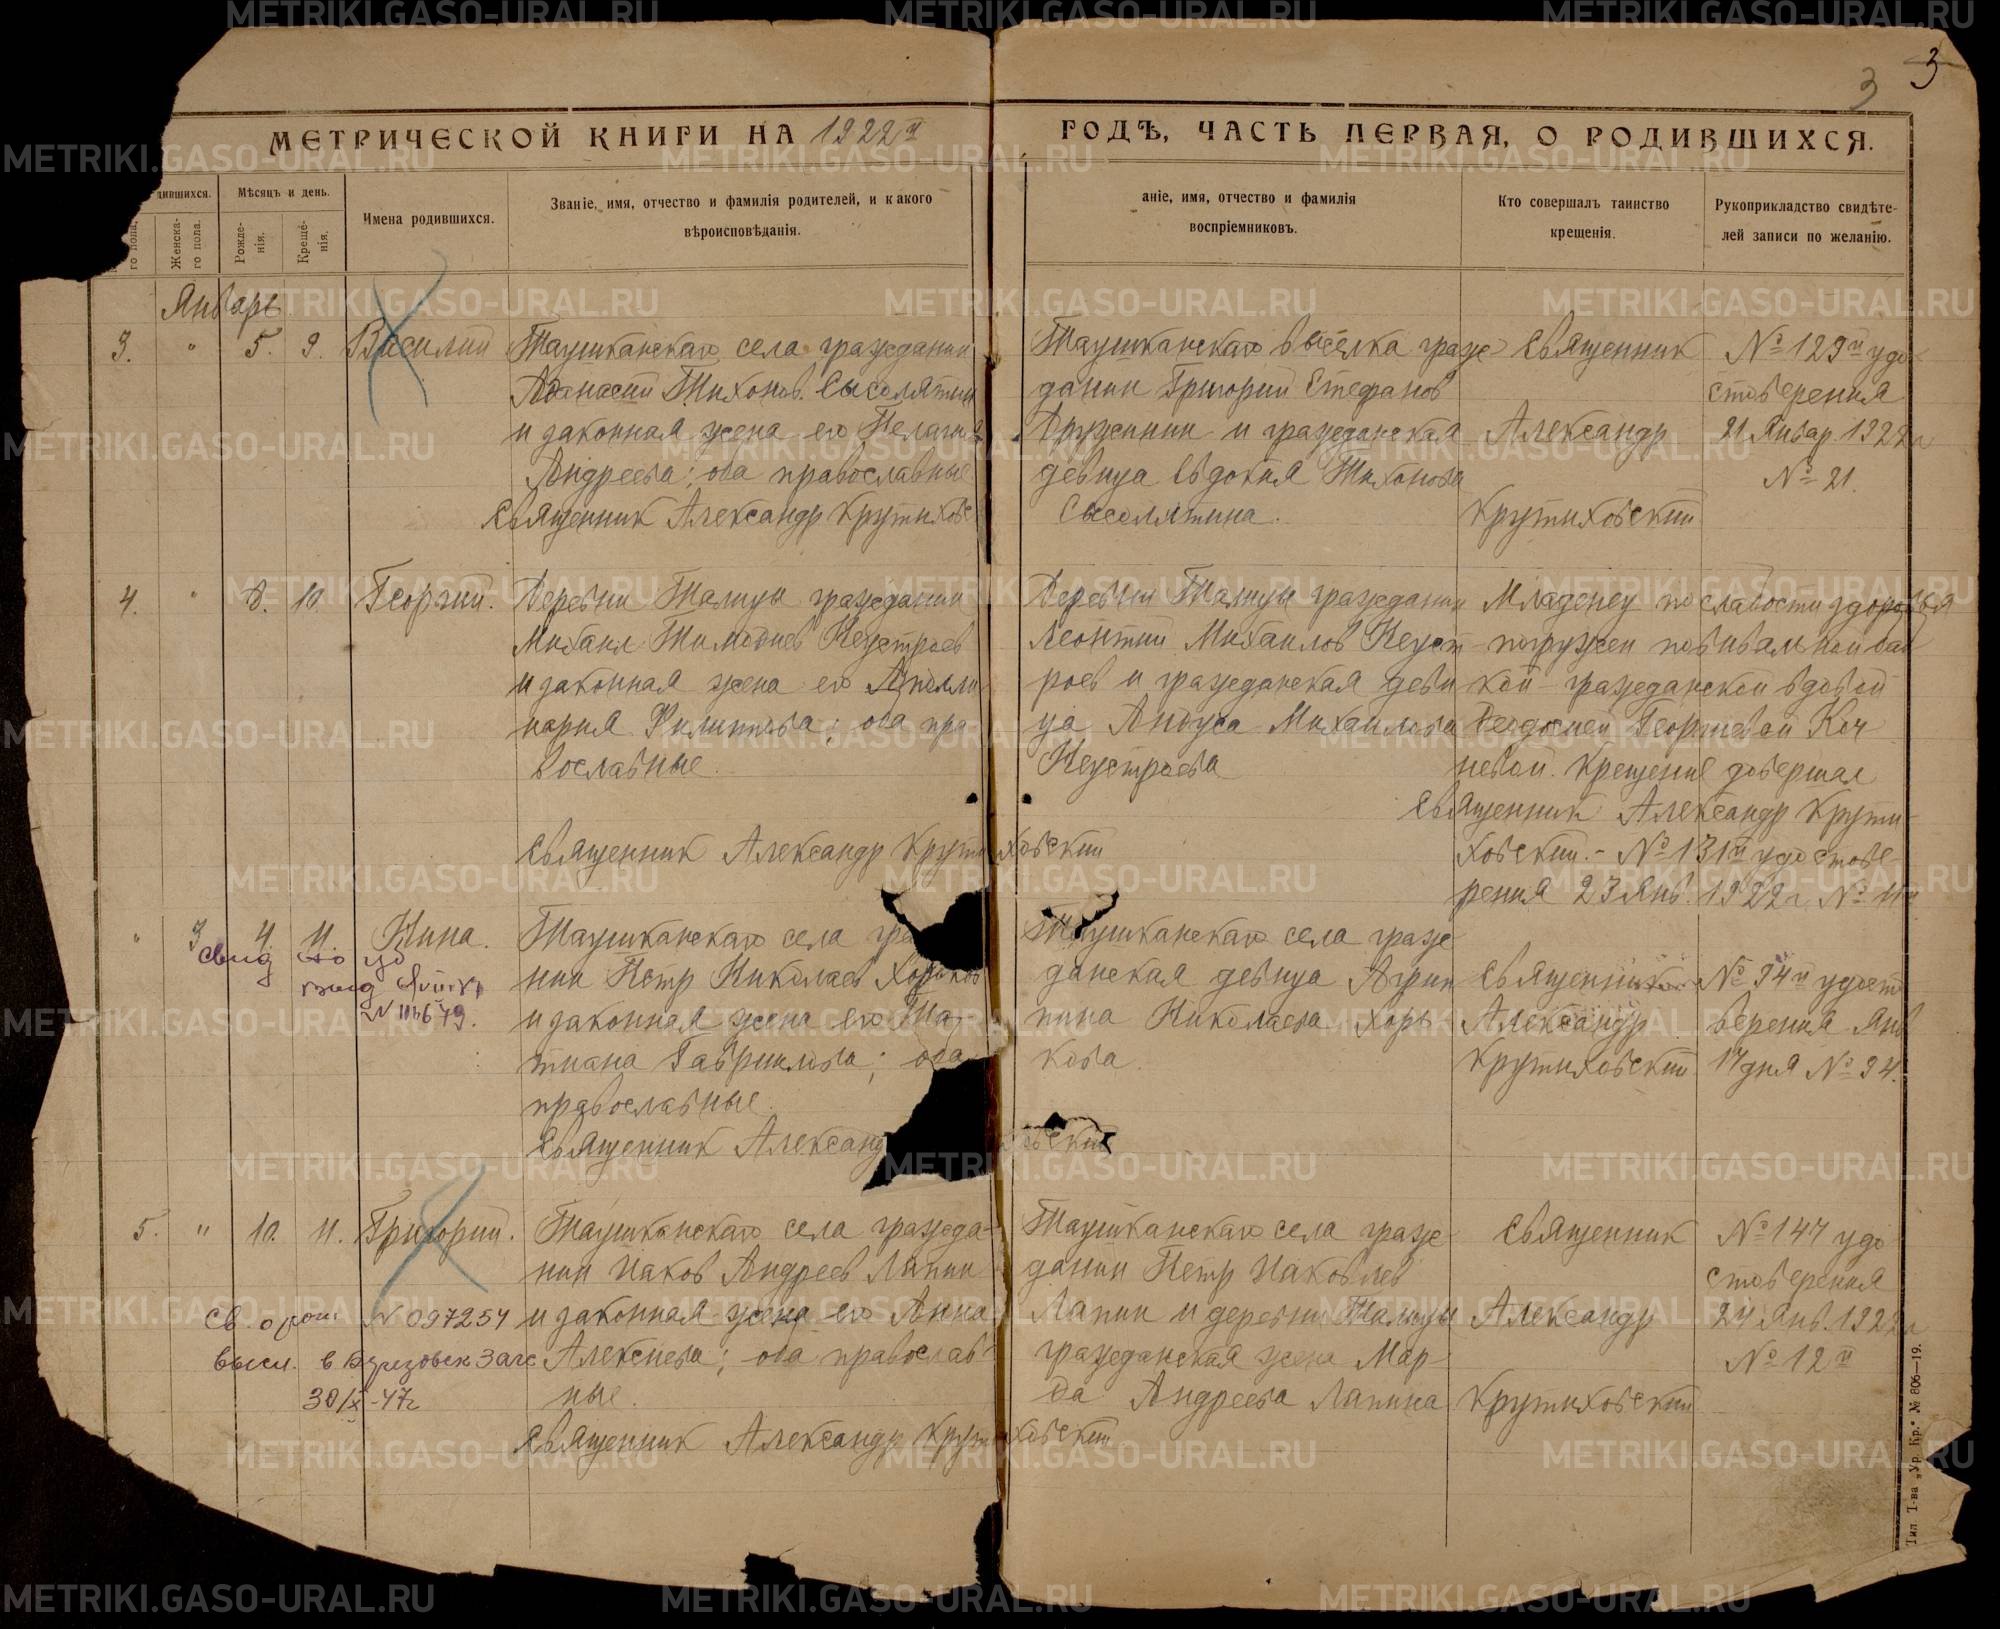 3
3
МЕТРИЧЕСКОЙ КНИГИ НА 1922й
ГОДѢ, ЧАСТЬ ПЕРВАЯ, О РОДИВШИХСЯ.
дившихся.
Мѣсяцъ и день.
Имена родившихся.
Званіе, имя, отчество и фамилія родителей, и какого
вѣроисповѣданія.
го пола.
Женска-
го пола.
Рожде-
нія.
Креще-
нія.
аніе, имя, отчество и фамилія
воспріемниковъ.
Кто совершалъ таинство
крещенія.
Рукоприкладство свидѣте-
лей записи по желанію.
Январь
3. " 5. 9. Василий
Таушканскаго села гражданин
Афанасий Тихонов Сысолятин
и законная жена его Пелагия
Андреева; оба православные
Священник Александр Крутиховс
Таушканскаго выселка граж
данин Григорий Стефанов
Дружинин и гражданская
девица Евдокия Тихонова
Сысолятина.
Священник
Александр
Крутиховский
№ 129й удо
стоверения
21 Январ. 1922г
№ 21.
4. " 8. 10. Георгий.
Деревни Талицы гражданин
Михаил Тимофиев Неустроев
и законная жена его Аполли
нария Филиппова; оба пра
вославные.
Священник Александр Крутиховский
Деревни Талицы гражданин
Леонтий Михаилов Неуст
роев и гражданская деви
ца Анфуса Михаилова
Неустроева
Младенец по слабости здоровья
погружен повивальной баб
кой гражданской вдовой
Феодосией Георгиевой Коч
невой. Крещение довершал
Священник Александр Крути-
ховский. - № 131й удостове-
рения 23 Янв. 1922г № 11й
" 3 4. 11. Нина.
Свид
№ 116679.
Таушканскаго села гра
нин Петр Николаев Хорьков
и законная жена его Та-
тиана Гавриилова; оба
православные.
Священник Александ овский
Таушканскаго села граж
данская девица Агрип
пина Николаева Хорь-
кова.
Священник
Александр
Крутиховский
№ 94й удост
оверения Янв
17 дня № 94.
5. " 10. 11. Григорий.
Св. о рож. № 097257
высл. в Березовск Загс
30/X-47г
Таушканскаго села гражда-
нин Иаков Андреев Лапин
и законная жена его Анна
Алексиева; оба православ-
ные.
Священник Александр Крутиховский
Таушканскаго села граж-
данин Петр Иаковлев
Лапин и деревни Талицы
гражданская жена Мар-
фа Андреева Лапина
Священник
Александр
Крутиховский
№ 147 удо
стоверения
24 Янв. 1922г
№ 12й
Тип. Т-ва „Ур. Кр." № 806—19.
METRIKI.GASO-URAL.RU